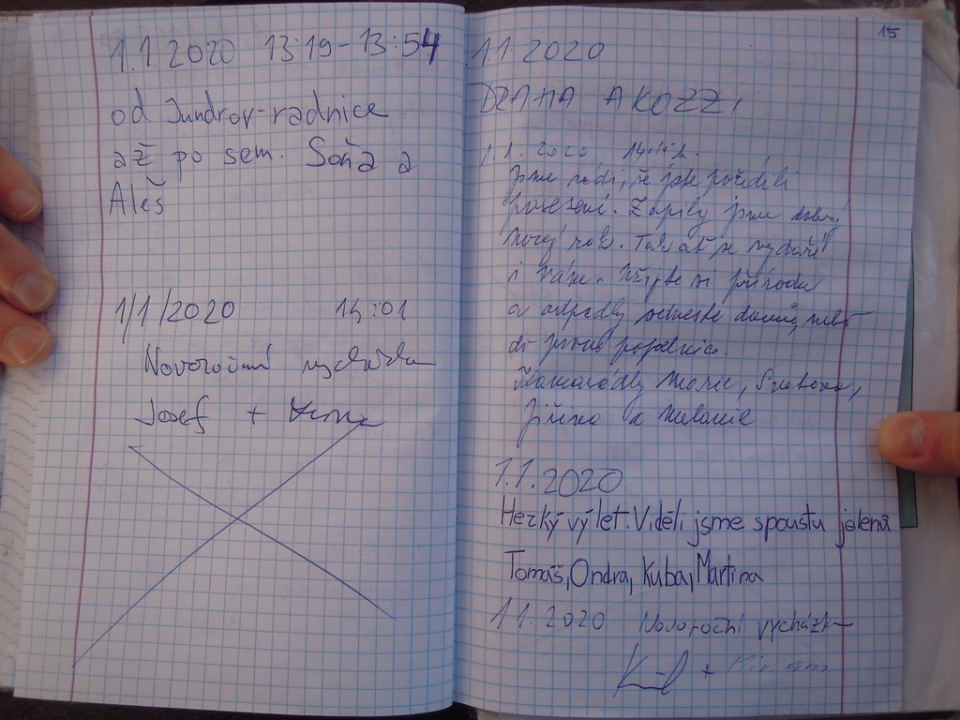 1.1.2020 13:19-13:54
od Jundrov-radnice
až po sem. Soňa a
Aleš
1/1/2020 14:01
Novoroční vycházka
Josef +
15
1.1.2020
A KOZZI
1.1.2020
Jsme rádi, že jste pořídili
posezení. Zapily jsme dobrý
Nový rok. Tak ať se vydaří
i Vám. Užijte si přírodu
a odpadky odneste domů, nebo
do popelnice.
Kamarádky Marie, Svatava,
Jiřina a Melanie
1.1.2020
Hezký výlet. Viděli jsme spoustu jelenů
Tomáš, Ondra, Kuba, Martina
1.1.2020 Novoroční vycházka
+ Miriam